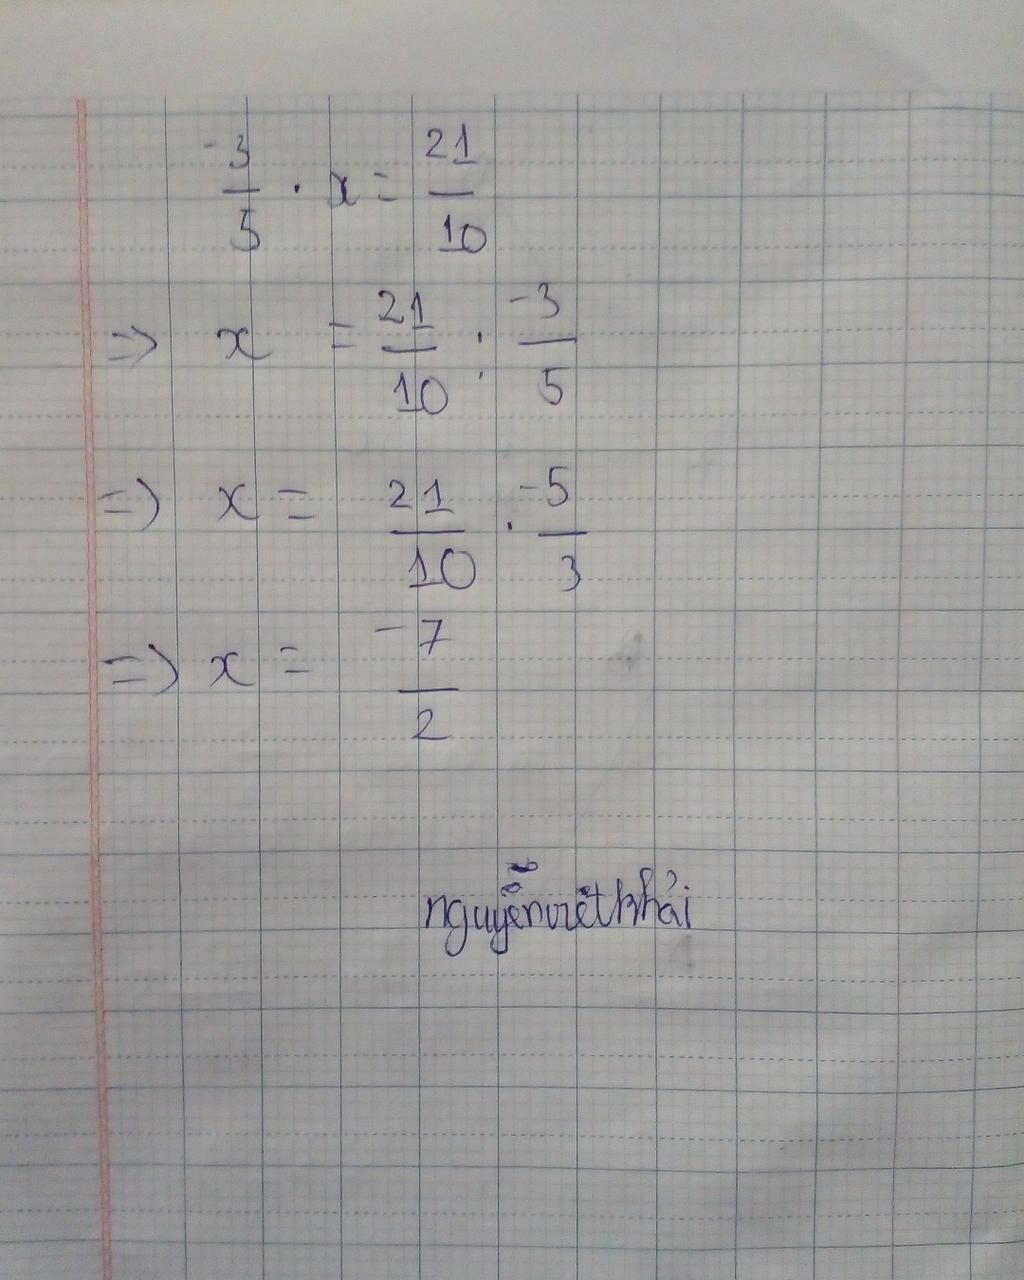 -3/5 . x = 21/10
=> x = 21/10 : -3/5
=> x = 21/10 . -5/3
=> x = -7/2
nguyễn việt khải